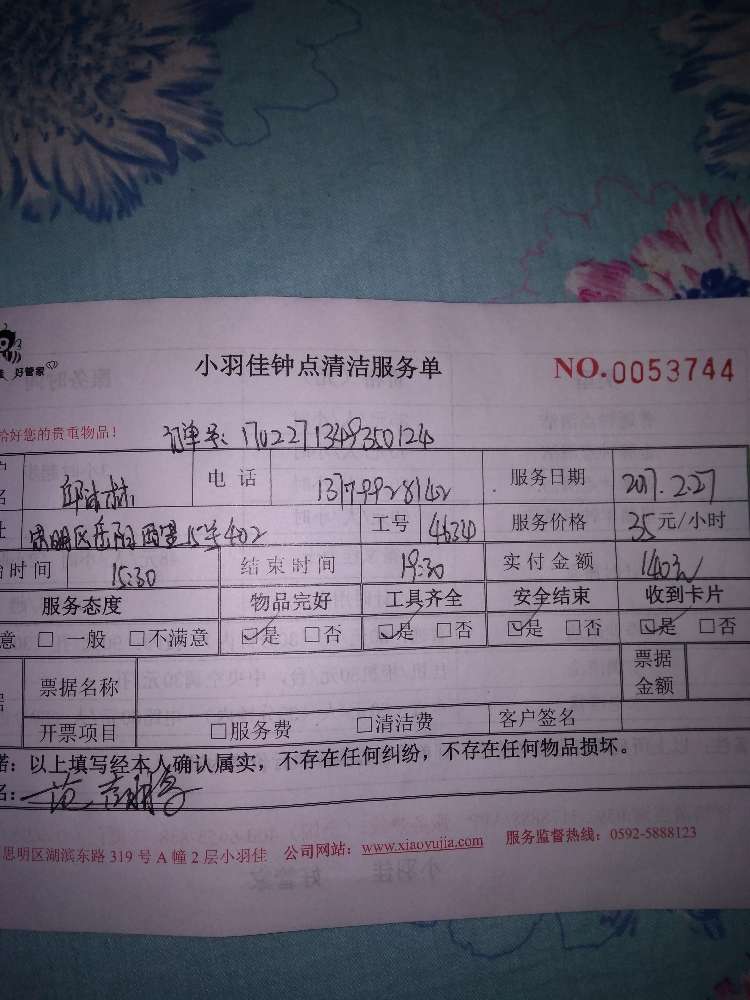 好管家
小羽佳钟点清洁服务单 NO.0053744
恰好您的贵重物品！ 订单号：1702271349350124
名 邱 林 电话 13799928142 服务日期 2017.2.27
思明区岳阳西里15号402 工号 4634 服务价格 35元/小时
时间 15:30 结束时间 19:30 实付金额 140元
服务态度 物品完好 工具齐全 安全结束 收到卡片
意 □一般 □不满意 ☑是 □否 ☑是 □否 ☑是 □否 ☑是 □否
票据名称 票据金额
开票项目 □服务费 □清洁费 客户签名
诺：以上填写经本人确认属实，不存在任何纠纷，不存在任何物品损坏。
名：范
思明区湖滨东路319号A幢2层小羽佳 公司网站：www.xiaoyujia.com 服务监督热线：0592-5888123